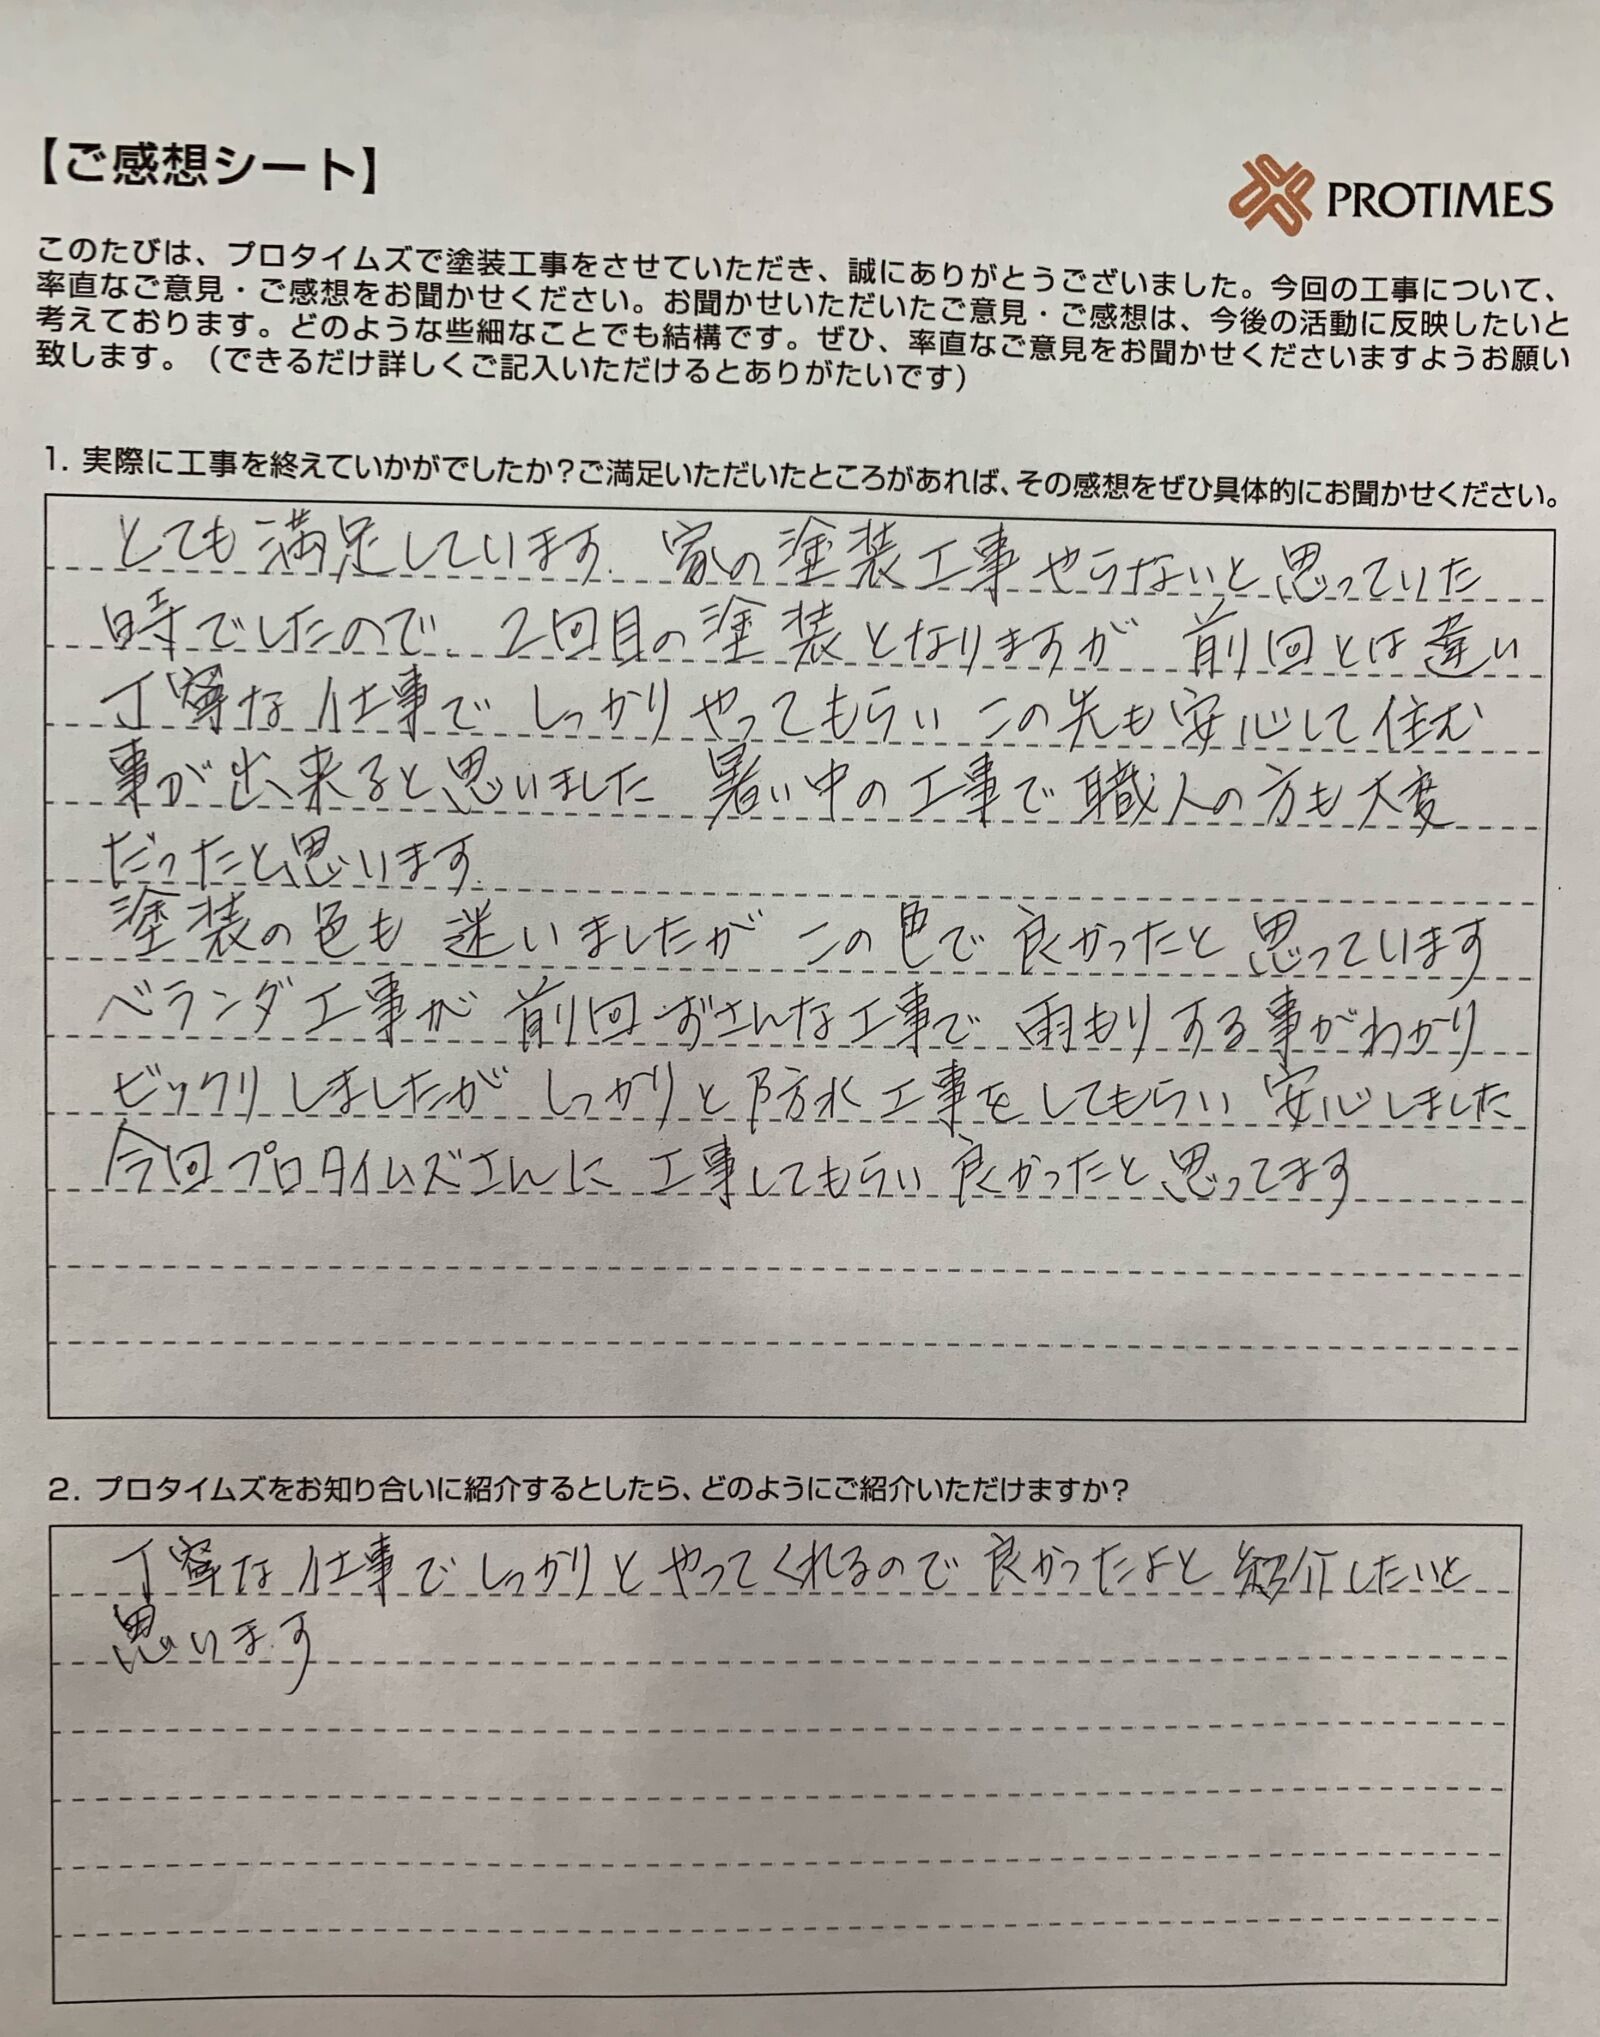 【ご感想シート】
PROTIMES
このたびは、プロタイムズで塗装工事をさせていただき、誠にありがとうございました。今回の工事について、
率直なご意見・ご感想をお聞かせください。お聞かせいただいたご意見・ご感想は、今後の活動に反映したいと
考えております。どのような些細なことでも結構です。ぜひ、率直なご意見をお聞かせくださいますようお願い
致します。（できるだけ詳しくご記入いただけるとありがたいです）
1. 実際に工事を終えていかがでしたか？ご満足いただいたところがあれば、その感想をぜひ具体的にお聞かせください。
とても満足しています. 家の塗装工事やらないと思っていた
時でしたので、2回目の塗装となりますが 前回とは違い
丁寧な仕事で しっかりやってもらい この先も安心して住む
事が出来ると思いました 暑い中の工事で職人の方も大変
だったと思います.
塗装の色も 迷いましたが この色で良かったと思っています
ベランダ工事が 前回ずさんな工事で 雨もりする事がわかり
ビックリしましたが しっかりと防水工事をしてもらい 安心しました
今回プロタイムズさんに 工事してもらい良かったと思ってます
2. プロタイムズをお知り合いに紹介するとしたら、どのようにご紹介いただけますか？
丁寧な仕事でしっかりとやってくれるので良かったよと紹介したいと
思います